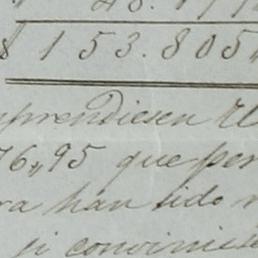 $ 153.805"
mprendiesen el
76,,95 que per
ra han sido
si convinie